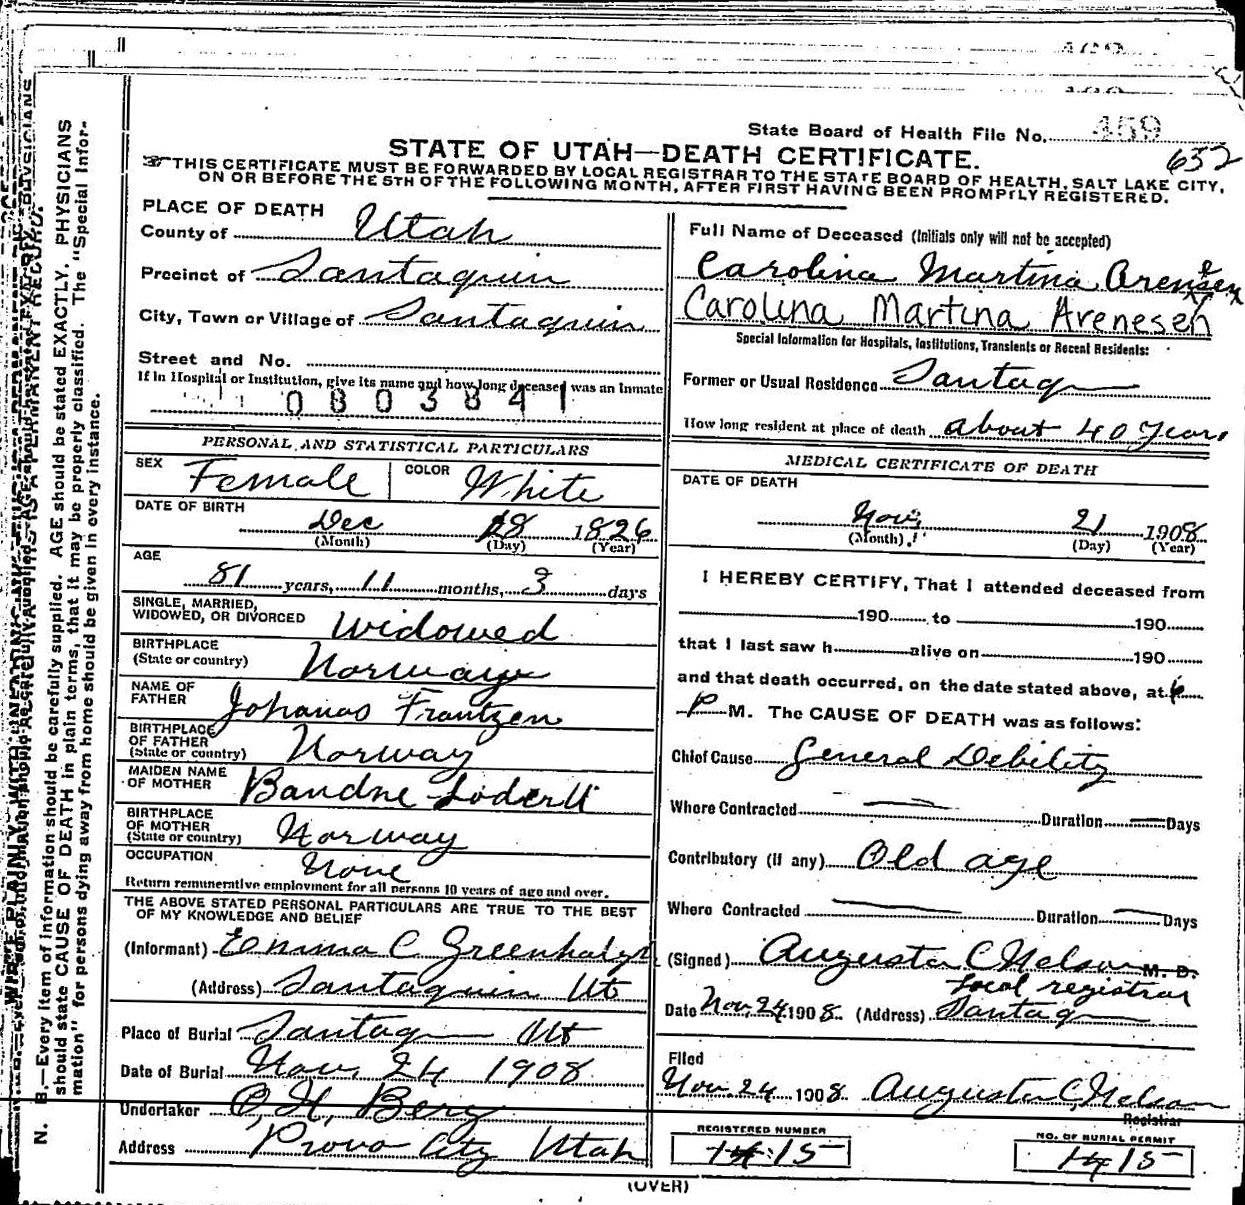 State Board of Health File No. 459
632
STATE OF UTAH—DEATH CERTIFICATE.
☞THIS CERTIFICATE MUST BE FORWARDED BY LOCAL REGISTRAR TO THE STATE BOARD OF HEALTH, SALT LAKE CITY,
ON OR BEFORE THE 5TH OF THE FOLLOWING MONTH, AFTER FIRST HAVING BEEN PROMPTLY REGISTERED.
PLACE OF DEATH
County of Utah
Precinct of Santaquin
City, Town or Village of Santaquin
Street and No.
If in Hospital or Institution, give its name and how long deceased was an inmate
0803841
PERSONAL AND STATISTICAL PARTICULARS
SEX Female COLOR White
DATE OF BIRTH
Dec 28 1826
(Month) (Day) (Year)
AGE
81 years, 11 months, 3 days
SINGLE, MARRIED,
WIDOWED, OR DIVORCED Widowed
BIRTHPLACE
(State or country) Norway
NAME OF
FATHER Johanas Frantzen
BIRTHPLACE
OF FATHER
(State or country) Norway
MAIDEN NAME
OF MOTHER
BIRTHPLACE
OF MOTHER
(State or country) Norway
OCCUPATION None
Return remunerative employment for all persons 10 years of age and over.
THE ABOVE STATED PERSONAL PARTICULARS ARE TRUE TO THE BEST
OF MY KNOWLEDGE AND BELIEF
(Informant) Emma C Greenhalgh
(Address) Santaquin Ut
Place of Burial Santaq Ut
Date of Burial Nov, 24 1908
Undertaker O, H, Berg
Address Provo City Utah
Full Name of Deceased (Initials only will not be accepted)
Carolina Martina Arensen
Carolina Martina Arenesen
Special Information for Hospitals, Institutions, Transients or Recent Residents:
Former or Usual Residence Santaq
How long resident at place of death about 40 Years
MEDICAL CERTIFICATE OF DEATH
DATE OF DEATH
Nov, 21 1908
(Month) (Day) (Year)
I HEREBY CERTIFY, That I attended deceased from
190 to 190
that I last saw h alive on 190
and that death occurred, on the date stated above, at 6
P M. The CAUSE OF DEATH was as follows:
Chief Cause General Debility
Where Contracted — Duration — Days
Contributory (if any) Old age
Where Contracted — Duration — Days
(Signed) Augusta C Nelson M. D.
Local registrar
Date Nov, 24 1908. (Address) Santaq
Filed
Nov 24 1908. Augusta C, Nelson
Registrar
REGISTERED NUMBER
14 15
NO. OF BURIAL PERMIT
14 15
(OVER)
N. B.—Every item of information should be carefully supplied. AGE should be stated EXACTLY. PHYSICIANS
should state CAUSE OF DEATH in plain terms, that it may be properly classified. The "Special Infor-
mation" for persons dying away from home should be given in every instance.